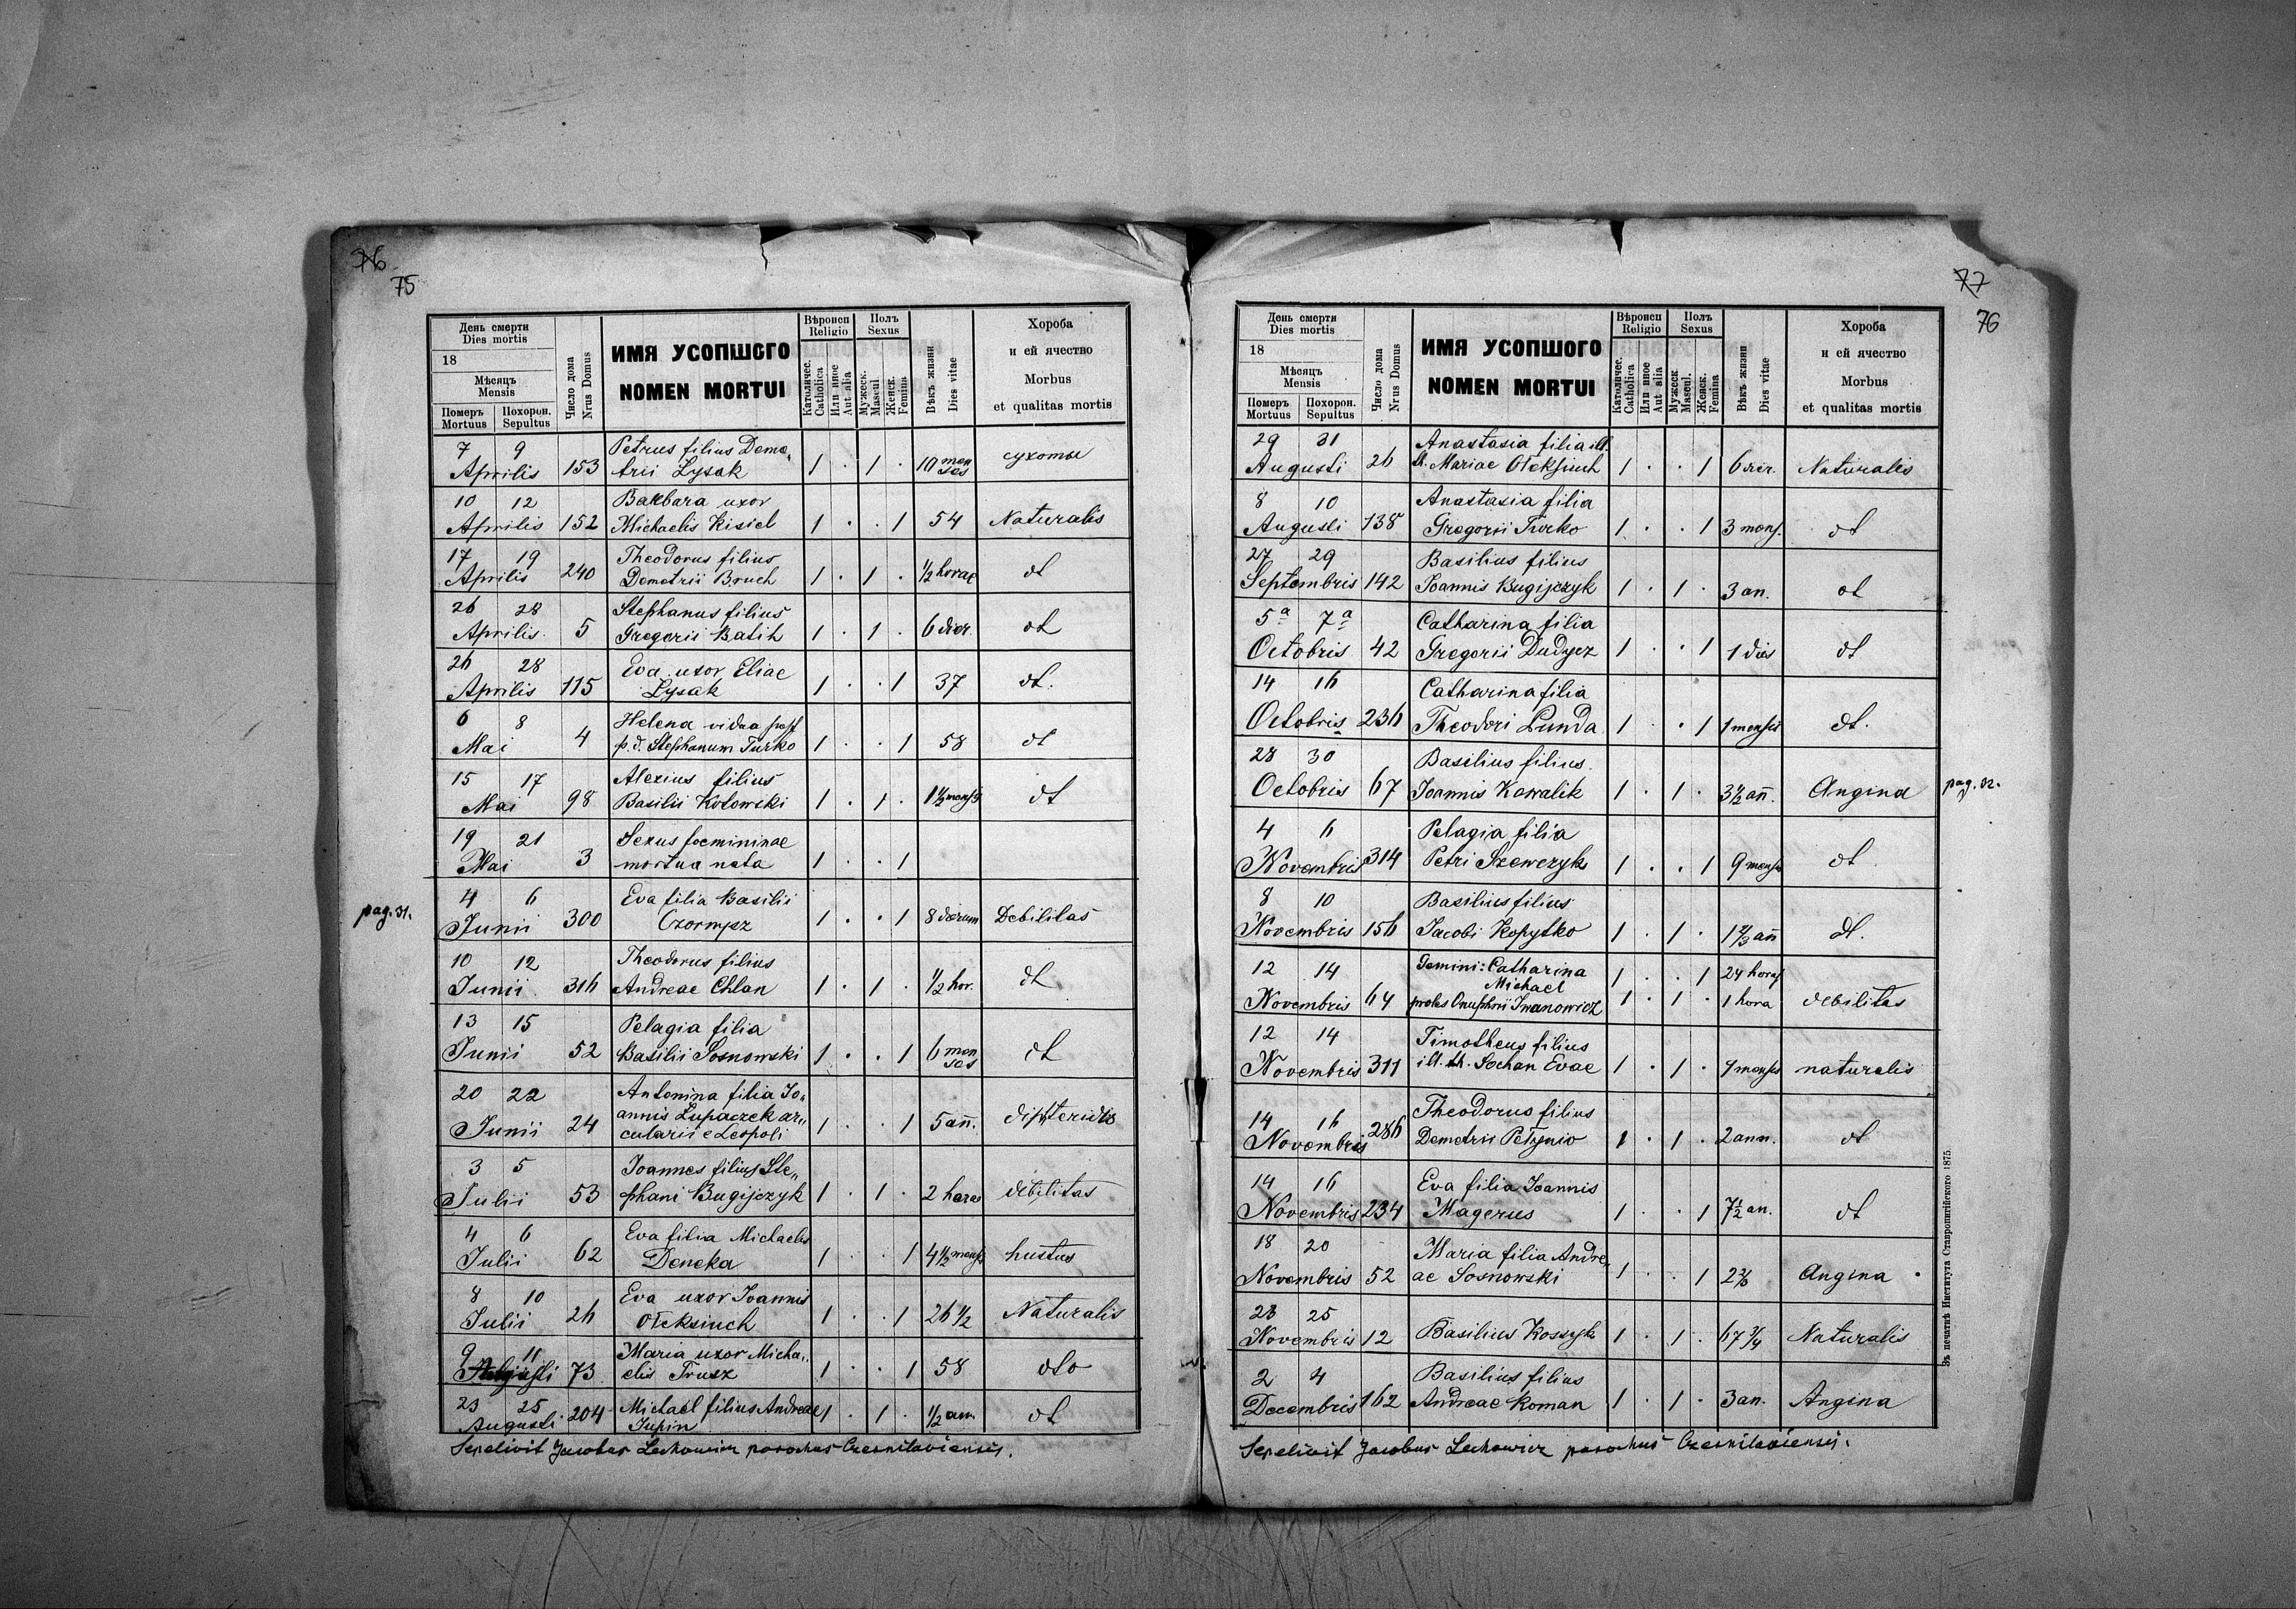 76
75
День смерти
Dies mortis
18
Мѣсяцъ
Mensis
Померъ Mortuus
Похорон. Sepultus
Число дома
Nrus Domus
ИМЯ УСОПШОГО
NOMEN MORTUI
Вѣроисп
Religio
Католичес.
Catholica
Или иное
Aut alia
Полъ
Sexus
Мужеск.
Mascul.
Женск.
Femina
Вѣкъ жизни
Dies vitae
Хороба
и ей ячество
Morbus
et qualitas mortis
7 9 Petrus filius Deme„
Aprilis 153 trii Lysak 1 . 1 . 10 men ses сухоты
10 12 Barbara uxor
Aprilis 152 Michaelis Kisiel 1 . . 1 54 Naturalis
17 19 Theodorus filius
Aprilis 240 Demetrii Bruch 1 . 1 . 1/2 horae dt
26 28 Stephanus filius
Aprilis 5 Gregorii Batih 1 . 1 . 6 dier. dt
26 28 Eva uxor Eliae
Aprilis 115 Lysak 1 . . 1 37 dt.
6 8 Helena vidua post
Mai 4 p. d. Stephanum Turko 1 . . 1 58 dt
15 17 Alexius filius
Mai 98 Basilii Kotowski 1 . 1 . 1 1/2 mensis dt
19 21 Sexus foemininae
Mai 3 mortua nata 1 . . 1
pag. 31.
4 6 Eva filia Basilii
Junii 300 Czornysz 1 . . 1 8 dierum Debilitas
10 12 Theodorus filius
Junii 316 Andreae Chlan 1 . 1 . 1/2 hor. dt
13 15 Pelagia filia
Junii 52 Basilii Sosnowski 1 . . 1 6 men ses dt
20 22 Antonina filia Jo„
annis Lupaczek ar„
Junii 24 cularii e Leopoli 1 . . 1 5 añ.
3 5 Joannes filius Ste„
Julii 53 phani Bugijczyk 1 . 1 . 2 horae debilitas
4 6 Eva filia Michaelis
Julii 62 Deneka 1 . . 1 4 1/2 mens hustus
8 10 Eva uxor Joannis
Julii 26 Oleksiuch 1 . . 1 26 1/2 Naturalis
9 11 Maria uxor Micha„
Augusti 73 elis Trusz 1 . . 1 58 dto
23 25 Michael filius Andreae
Augusti 204 Jupin 1 . 1 . 1/2 ann. dt
Sepelivit Jacobus Lechowicz parochus Czernilaviensis.
77
76
День смерти
Dies mortis
18
Мѣсяцъ
Mensis
Померъ Mortuus
Похорон. Sepultus
Число дома
Nrus Domus
ИМЯ УСОПШОГО
NOMEN MORTUI
Вѣроисп
Religio
Католичес.
Catholica
Или иное
Aut alia
Полъ
Sexus
Мужеск
Mascul.
Женск.
Femina
Вѣкъ жизни
Dies vitae
Хороба
и ей ячество
Morbus
et qualitas mortis
29 31 Anastasia filia ill.
Augusti 26 th. Mariae Oleksiuch 1 . . 1 6 dier. Naturalis
8 10 Anastasia filia
Augusti 138 Gregorii Turko 1 . . 1 3 mens. dt
27 29 Basilius filius
Septembris 142 Joannis Bugijczyk 1 . 1 . 3 an. dt
5a 7a Catharina filia
Octobris 42 Gregorii Dudycz 1 . . 1 1 dies dt
14 16 Catharina filia
Octobris 236 Theodori Lunda 1 . . 1 1 mensis dt.
28 30 Basilius filius
Octobris 67 Joannis Kowalik 1 . 1 . 3 1/2 añ. Angina
pag. 32.
4 6 Pelagia filia
Novembris 314 Petri Szewczyk 1 . . 1 9 menses dt
8 10 Basilius filius
Novembris 156 Jacobi Kopytko 1 . 1 . 1 2/3 añ dt.
12 14 Gemini: Catharina 1 . . 1 24 horas
Michael
Novembris 64 proles Onuphrii Iwanowicz 1 . 1 . 1 hora debilitas
12 14 Timotheus filius
Novembris 311 ill. th. Sochan Evae 1 . 1 . menses naturalis
14 16 Theodorus filius
Novembris 286 Demetrii Petynio 1 . 1 . 2 ann. dt
14 16 Eva filia Joannis
Novembris 234 Magerus 1 . . 1 7 1/2 an. dt
18 20 Maria filia Andre„
Novembris 52 ae Sosnowski 1 . . 1 Angina
23 25
Novembris 12 Basilius Kossyk 1 . 1 . 67 3/4 Naturalis
2 4 Basilius filius
Decembris 162 Andreae Roman 1 . 1 . 3 an. Angina
Sepelivit Jacobus Lechowicz parochus Czernilaviensis.
Въ печатнѣ Института Ставропигійского 1875.